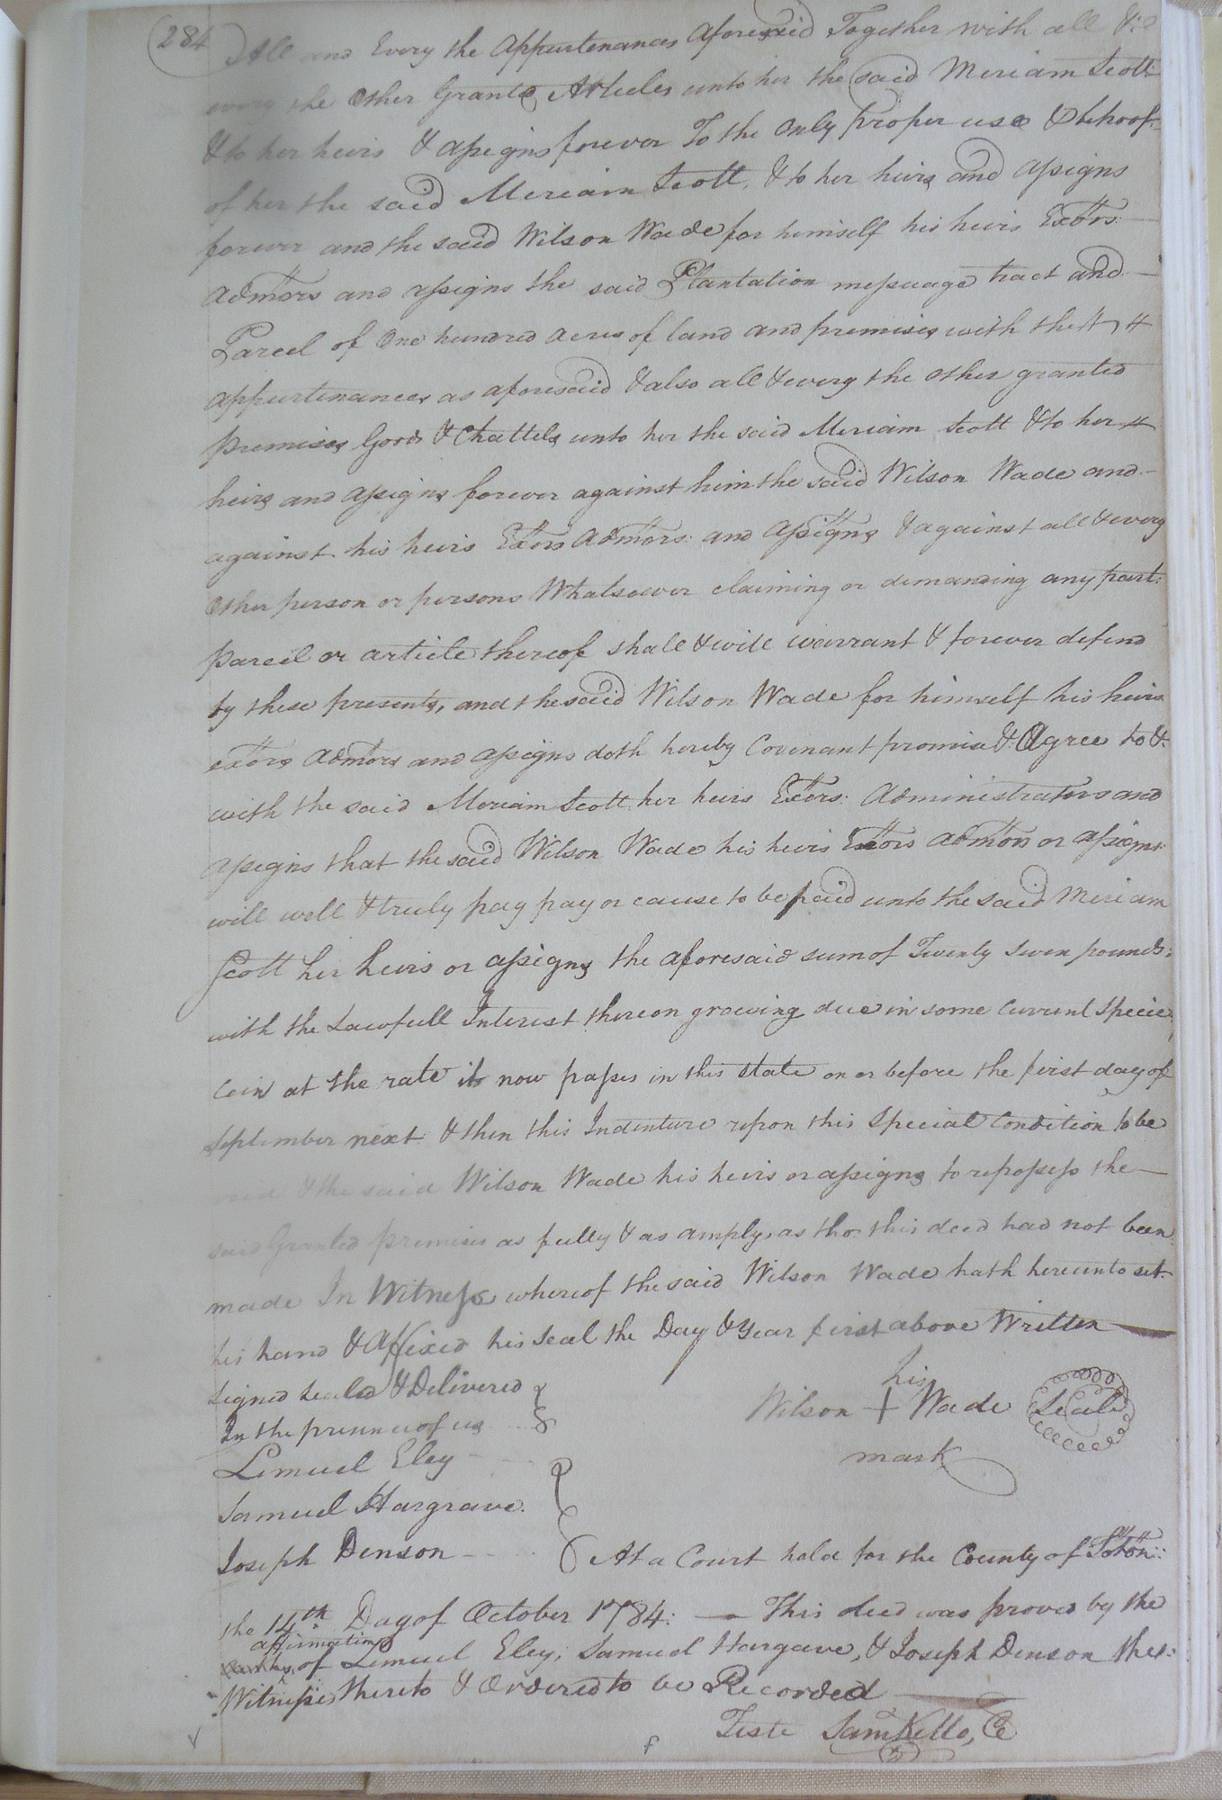 284
All and Every the Appurtenances Aforesaid Together with all &
every the Other Granted Articles unto her the said Meriam Scott
& to her heirs & assigns forever To the Only proper use & behoof
of her the said Meriam Scott, & to her heirs and assigns
forever and the said Wilson Wade for himself his heirs Extors:
Admtors and assigns the said Plantation messuage tract and
Parcel of One hundred acres of land and premises with the
appurtenances as aforesaid & also all & every the other granted
premises Goods & Chattels unto her the said Meriam Scott & to her
heirs and assigns forever against him the said Wilson Wade and
against his heirs Extors Admtors: and Assigns & against all & every
Other person or persons Whatsoever claiming or demanding any part:
parcel or article thereof shall & will warrant & forever defend
by these presents, and the said Wilson Wade for himself his heirs
extors Admtors and assigns doth hereby Covenant promis & Agree to &
with the said Meriam Scott her heirs Extors: Administrators and
assigns that the said Wilson Wade his heirs Extors Admtors or assigns
will well & truly pay pay or cause to be paid unto the said Meriam
Scott her heirs or assigns the aforesaid sum of Twenty Seven pounds:
with the Lawfull Interest thereon growing due in some Current Specie
Coin at the rate it now passes in this state on or before the first day of
September next & then this Indenture upon this Special Condition to be
& the said Wilson Wade his heirs or assigns to repossess the
said Granted premises as fully & as amply, as tho this deed had not been
made In Witness whereof the said Wilson Wade hath hereunto set
his hand & Affixed his Seal the Day & Year first above Written
Signed Sealed & Delivered
In the presence of us
his
Wilson + Wade Seal
mark
Lemuel Eley
Samuel Hargrave
Joseph Denson
At a Court held for the County of Sohton:
the 14th Day of October 1784: — This deed was proved by the
affirmation
of Lemuel Eley, Samuel Hargave, & Joseph Denson the
Witnesses thereto & Ordered to be Recorded
Teste Sam Kello, CC